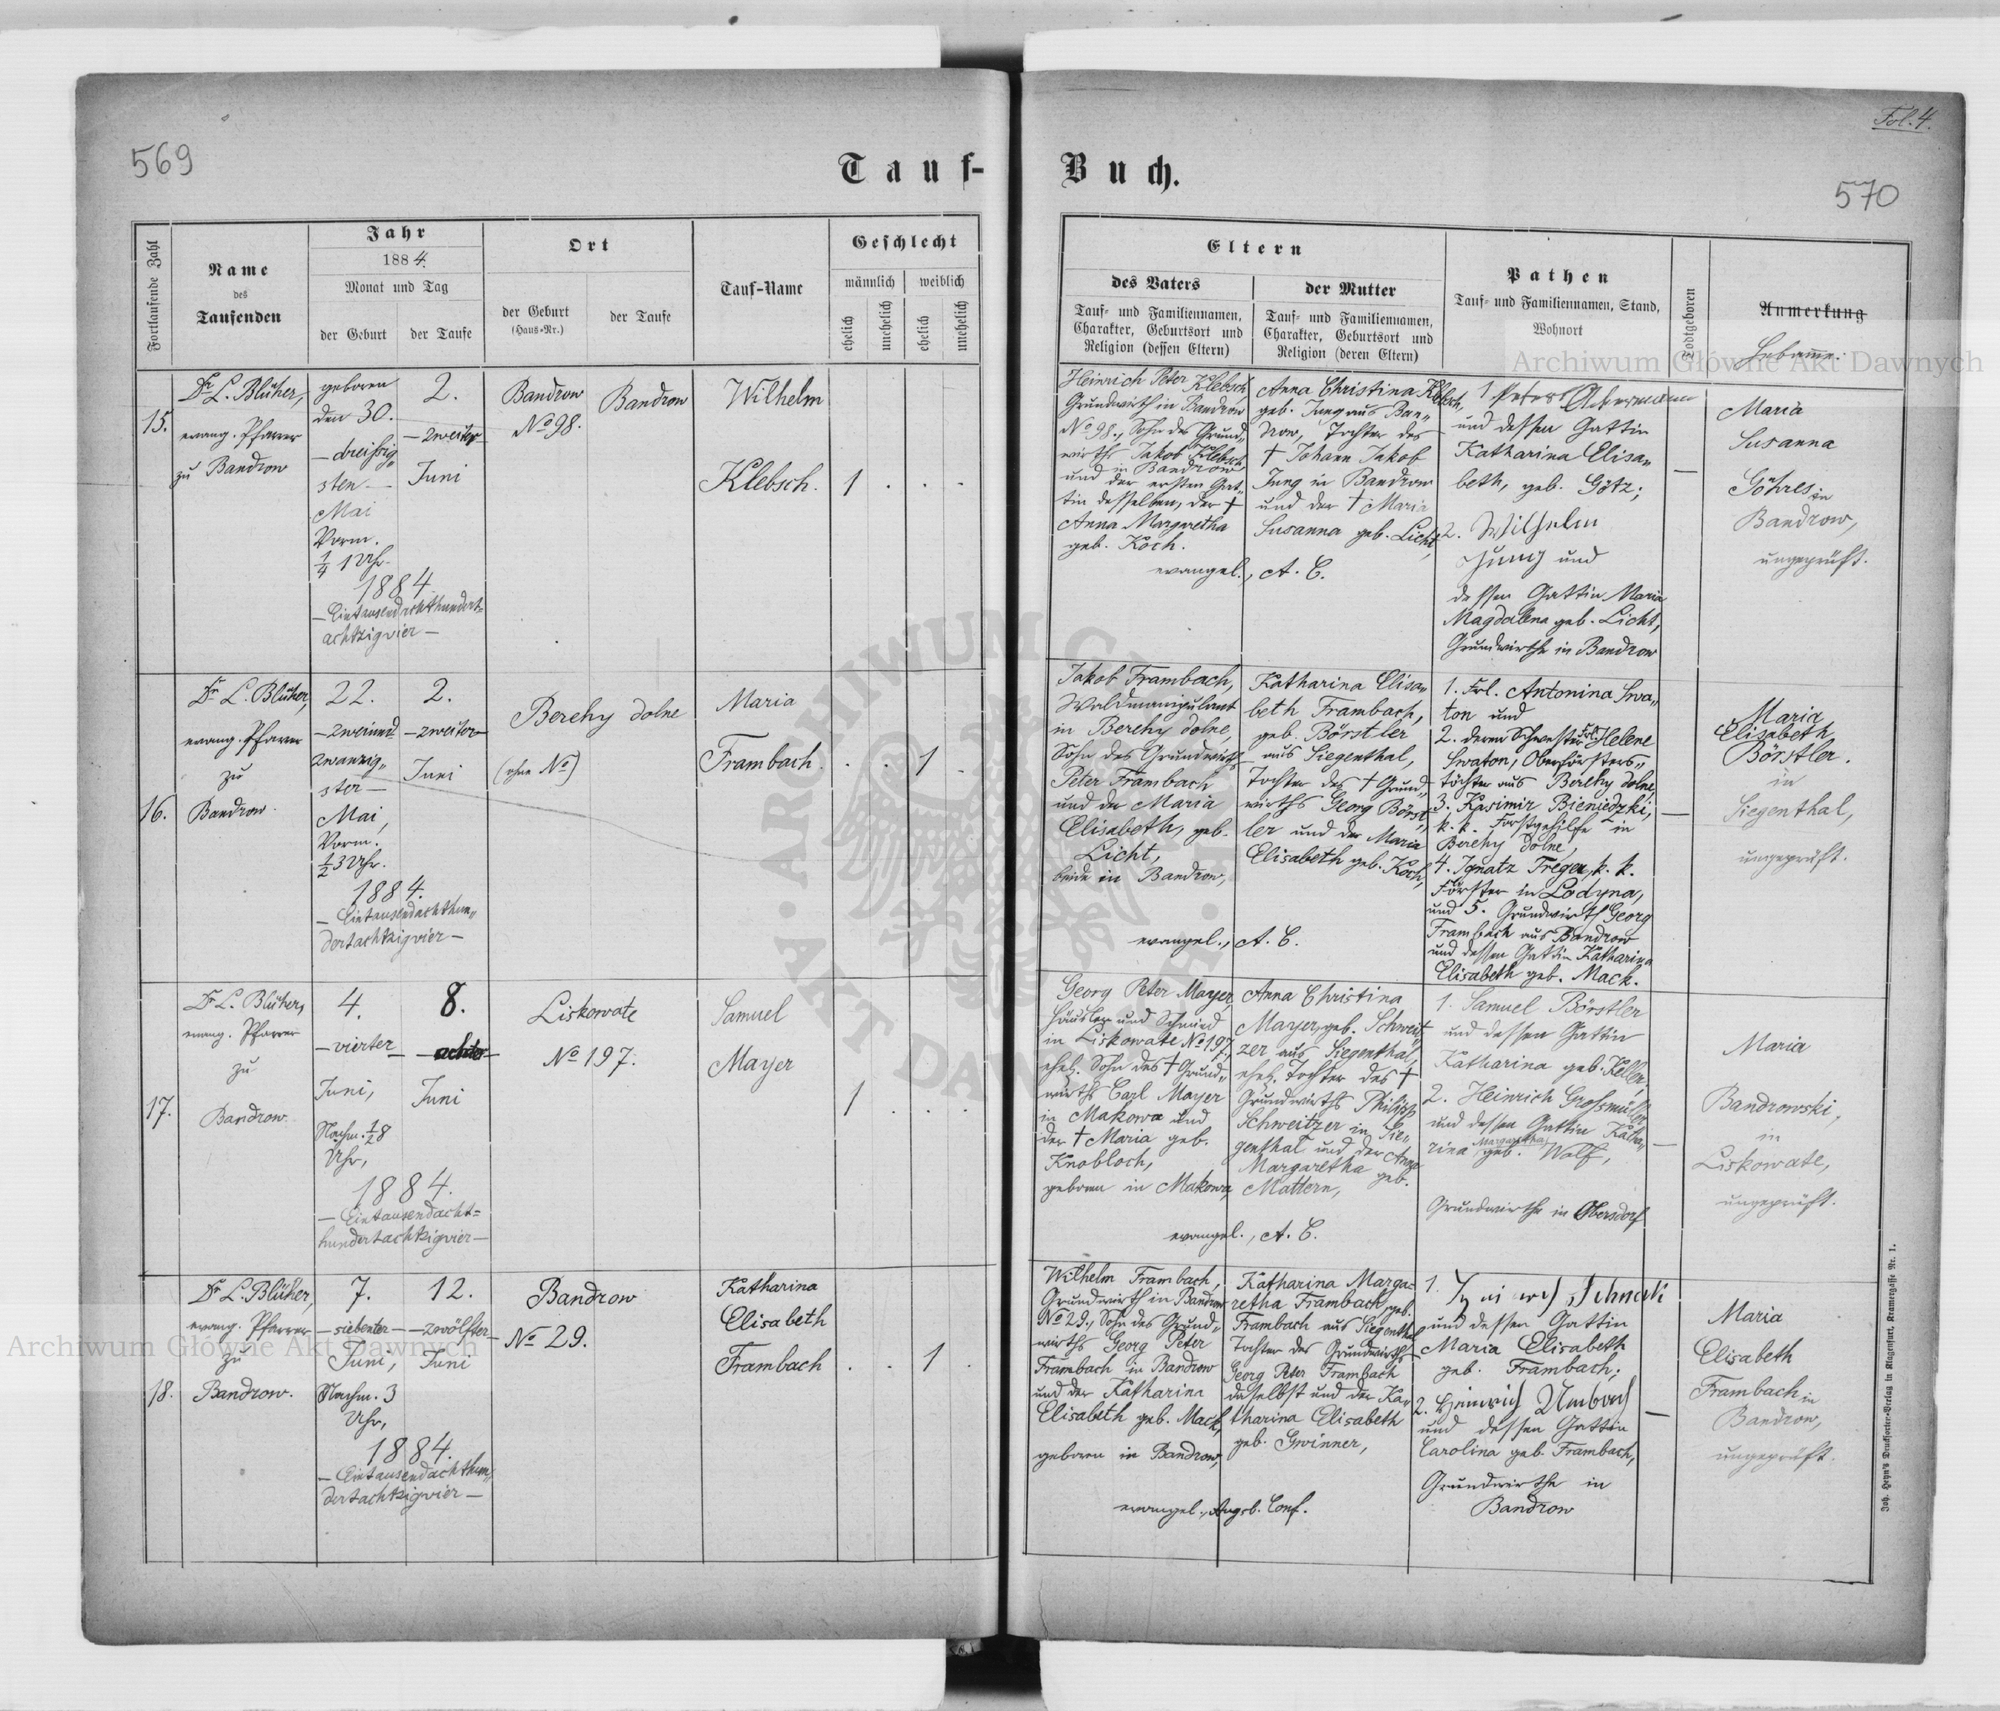 569
Tauf-
Fortlaufende Zahl
Name
des
Taufenden
Jahr
1884.
Monat und Tag
der Geburt
der Taufe
Ort
der Geburt
(Haus-Nr.)
der Taufe
Tauf-Name
Geschlecht
männlich
weiblich
ehelich
unehelich
ehelich
unehelich
15.
Dr L. Blüher,
evang. Pfarrer
zu Bandrow
geboren
den 30.
– dreißig„
sten –
Mai
Vorm.
¼ 1 Uhr.
1884.
– Eintausendachthundert=
achtzigvier –
2.
– zweiter
Juni
Bandrow
No 98.
Bandrow
Wilhelm
Klebsch.
1 . . .
16.
Dr L. Blüher,
evang. Pfarrer
zu
Bandrow.
22.
– zweiund
zwanzig„
ster –
Mai,
Vorm.
½ 3 Uhr.
1884.
– Eintausendachthun„
dertachtzigvier –
2.
– zweiter –
Juni
Berehy dolne
(ohne No)
Maria
Frambach
. . 1 .
17.
Dr L. Blüher,
evang. Pfarrer
zu
Bandrow.
4.
– vierter –
Juni,
Nachm. ½ 8
Uhr,
1884.
– Eintausendacht=
hundertachtzigvier –
8.
– achter –
Juni
Liskowate
No 197.
Samuel
Mayer
1 . . .
18.
Dr L. Blüher,
evang. Pfarrer
zu
Bandrow.
7.
– siebenter –
Juni,
Nachm. 3
Uhr,
1884.
– Eintausendachthun„
dertachtzigvier –
12.
– zwölfter –
Juni
Bandrow
No 29.
Katharina
Elisabeth
Frambach
. . 1 .
Fol. 4.
Buch.
570
Eltern
des Vaters
Tauf- und Familiennamen,
Charakter, Geburtsort und
Religion (dessen Eltern)
der Mutter
Tauf- und Familiennamen,
Charakter, Geburtsort und
Religion (deren Eltern)
Pathen
Tauf- und Familiennamen, Stand,
Wohnort
Todtgeboren
Anmerkung
Hebamme.
Heinrich Peter Klebsch,
Grundwirth in Bandrow
No 98., Sohn des Grund„
wirths Jakob Klebsch
in Bandrow
und der ersten Gat„
tin desselben, der †
Anna Margretha
geb. Koch.
Anna Christina Klebsch,
geb. Jung aus Ban„
drow, Tochter des
† Johann Jakob
Jung in Bandrow
und der † Maria
Susanna geb. Licht,
evangel., A. C.
1. Peter
und dessen Gattin
Katharina Elisa„
beth, geb. Götz;
2. Wilhelm
Jung und
dessen Gattin Maria
Magdalena geb. Licht,
Grundwirthe in Bandrow
–
Maria
Susanna
Göhres in
Bandrow,
ungeprüft.
Jakob Frambach,
Waldmanipulant
in Berehy dolne,
Sohn des Grundwirths
Peter Frambach
und der Maria
Elisabeth, geb.
Licht,
beide in Bandrow,
Katharina Elisa„
beth Frambach,
geb. Börstler
aus Siegenthal,
Tochter des † Grund„
wirths Georg Börst„
ler und der Maria
Elisabeth geb. Koch,
evangel., A. C.
1. Frl. Antonina Swa„
ton und
2. deren Schwester Frl. Helene
Swaton, Oberförsters„
töchter aus Berehy dolne,
3. Kasimir Bieniedzki,
k. k. Forstgehilfe in
Berehy dolne,
4. Ignatz Treger, k. k.
Förster in Lodyna,
und 5. Grundwirth Georg
Frambach aus Bandrow
und dessen Gattin Katharina
Elisabeth geb. Mack.
–
Maria
Elisabeth
Börstler.
in
Siegenthal,
ungeprüft.
Georg Peter Mayer,
Häusler und Schmied
in Liskowate No 197.,
ehel. Sohn des † Grund„
wirths Carl Mayer
in Makowa und
der † Maria geb.
Knobloch,
geboren in Makowa,
Anna Christina
Mayer, geb. Schweit„
zer aus Siegenthal,
ehel. Tochter des †
Grundwirths Philipp
Schweitzer in Sie„
genthal und der Anna
Margaretha geb.
Mattern,
evangel., A. C.
1. Samuel Börstler
und dessen Gattin
Katharina geb. Keller,
2. Heinrich Grossmüller
und dessen Gattin Katha„
rina Margaretha geb. Wolf,
Grundwirthe in Obersdorf
–
Maria
Bandrowski,
in
Liskowate,
ungeprüft.
Wilhelm Frambach,
Grundwirth in Bandrow
No 29., Sohn des Grund„
wirths Georg Peter
Frambach in Bandrow
und der Katharina
Elisabeth geb. Mack,
geboren in Bandrow,
Katharina Marga„
retha Frambach, geb.
Frambach aus Siegenthal
Tochter des Grundwirths
Georg Peter Frambach
daselbst und der Ka„
tharina Elisabeth
geb. Gwinner,
evangel., Augsb. Conf.
1.
und dessen Gattin
Maria Elisabeth
geb. Frambach;
2. Heinrich
und dessen Gattin
Carolina geb. Frambach,
Grundwirthe in
Bandrow
–
Maria
Elisabeth
Frambach in
Bandrow,
ungeprüft.
Joh. Heyn's Drucksorten-Verlag in Klagenfurt, Kramergasse Nr. 1.
Archiwum Główne Akt Dawnych
Archiwum Główne Akt Dawnych